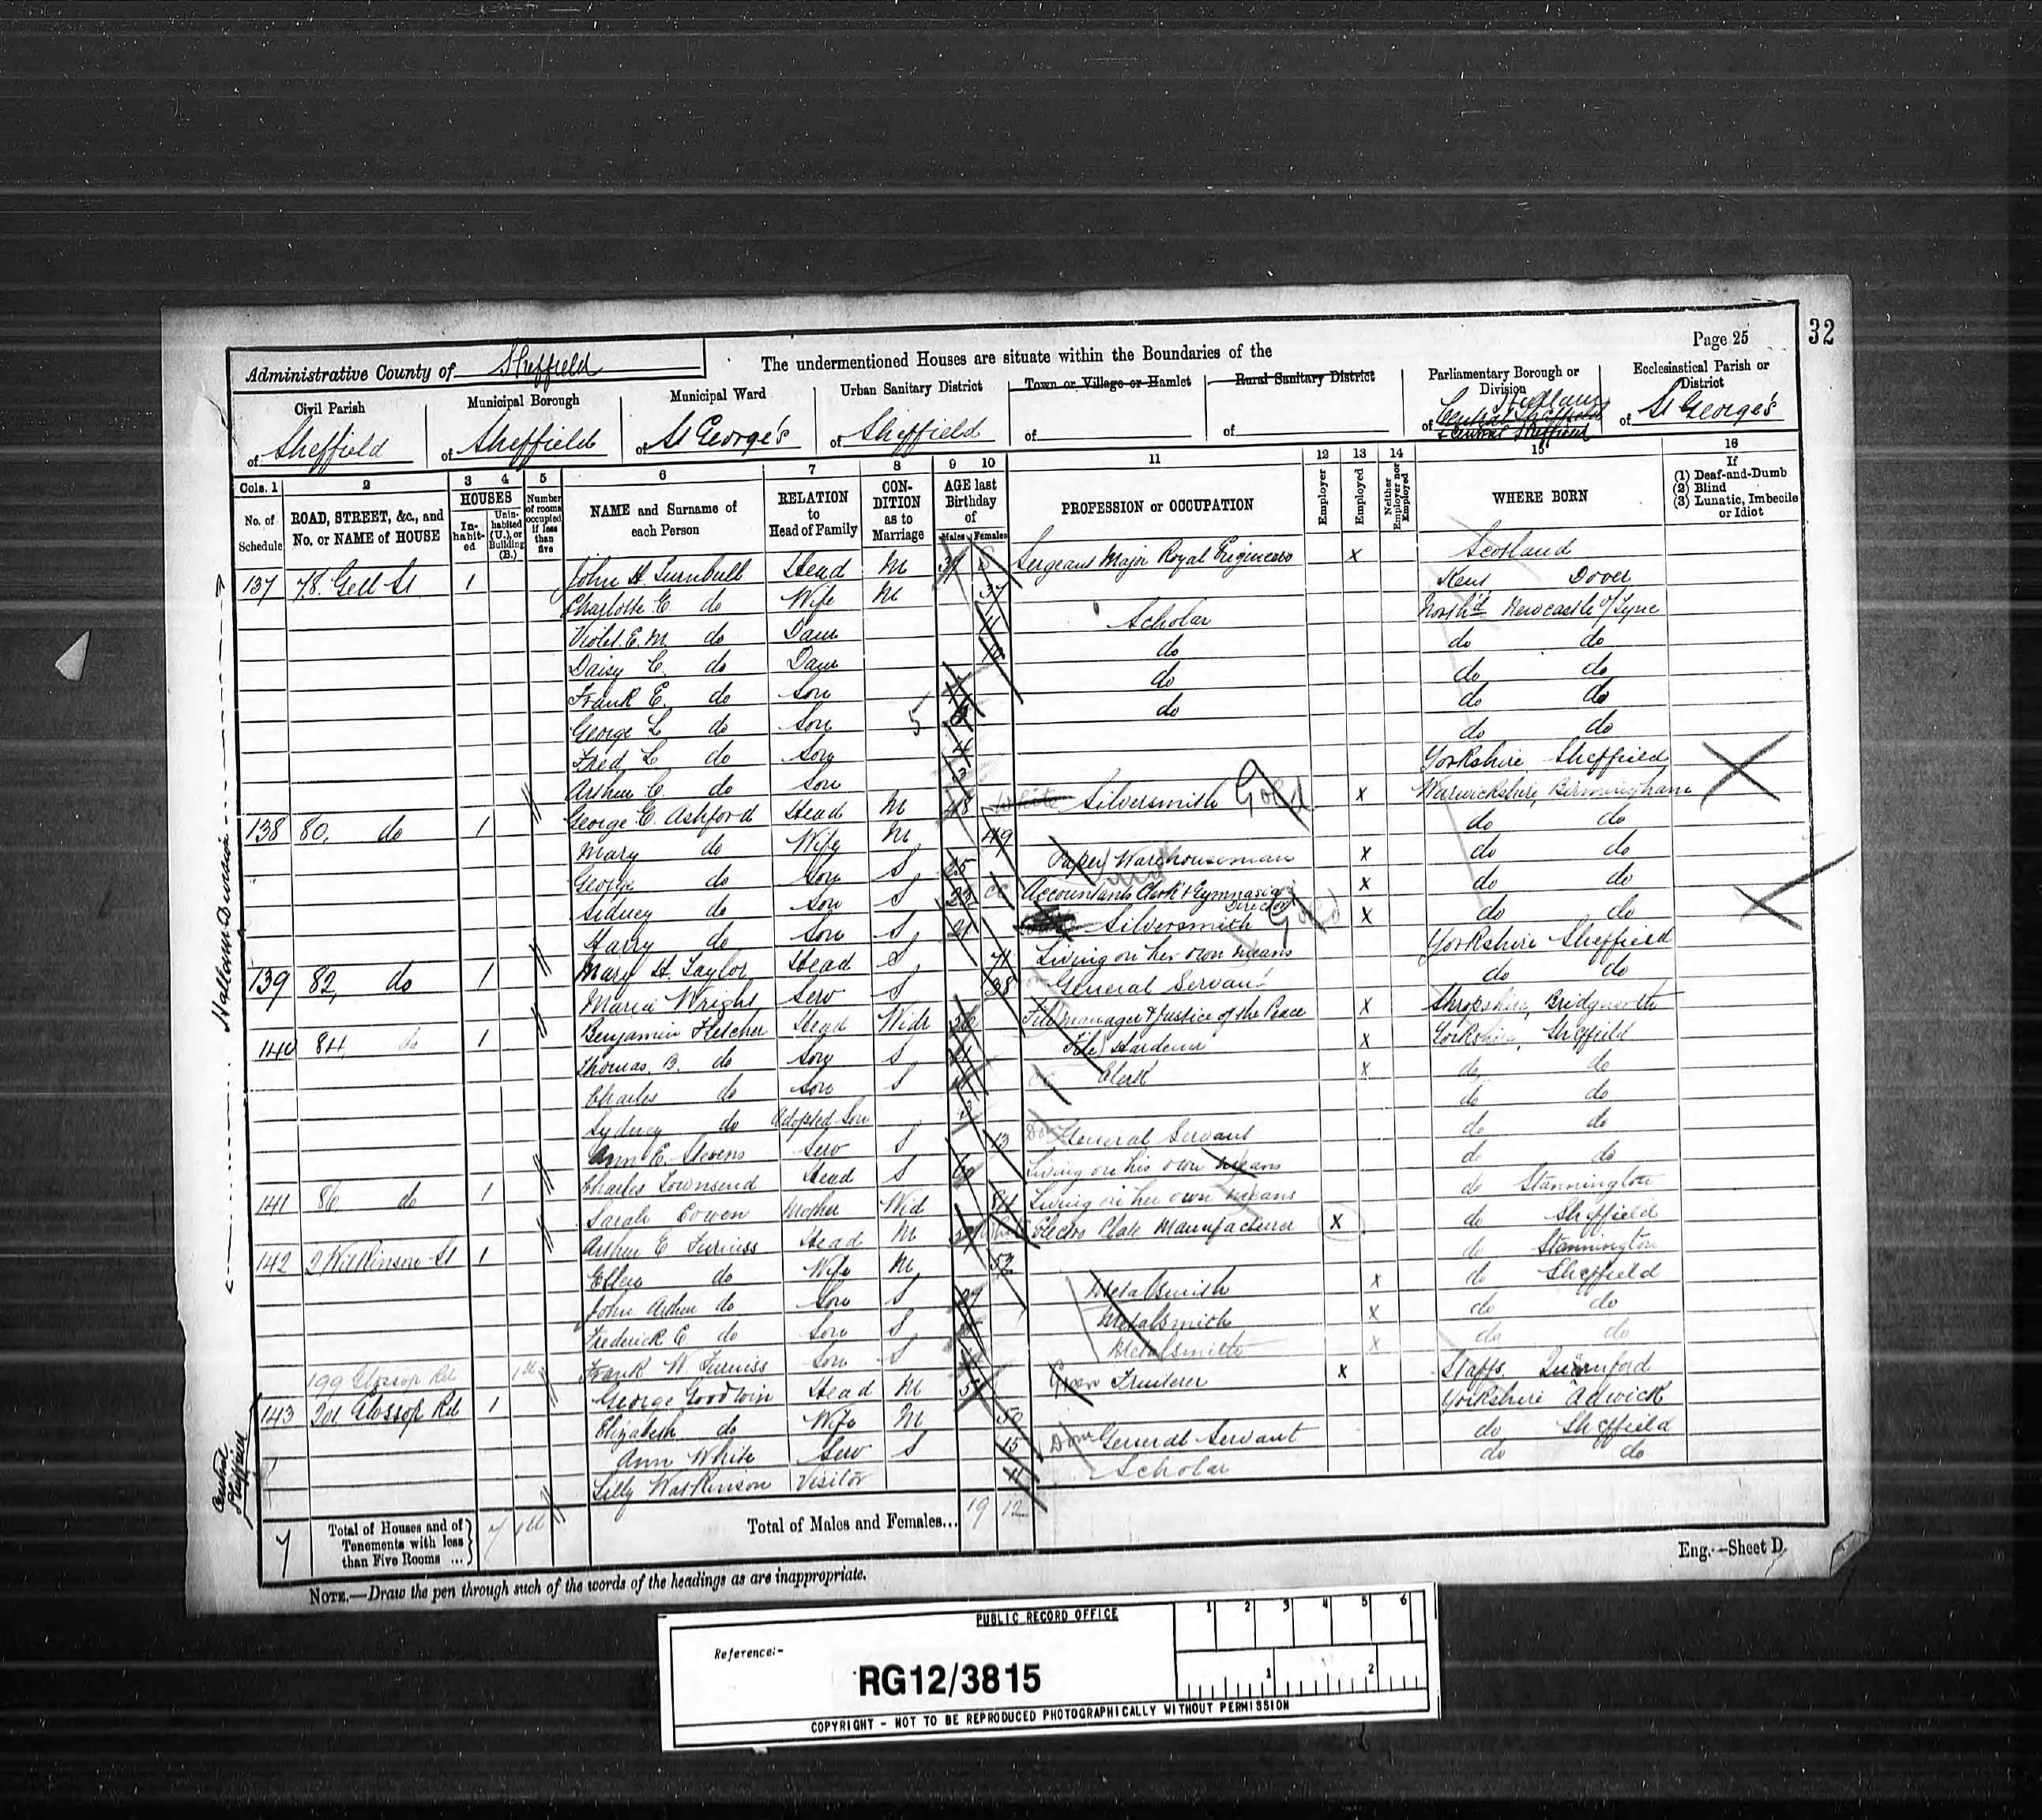 Page 25
32
Administrative County of Sheffield
The undermentioned Houses are situate within the Boundaries of the
Civil Parish of Sheffield
Municipal Borough of Sheffield
Municipal Ward of St George's
Urban Sanitary District of Sheffield
Town or Village or Hamlet of
Rural Sanitary District of
Parliamentary Borough or Division of Hallam Central Sheffield
Ecclesiastical Parish or District of St George's
Cols. 1 2 3 4 5 6 7 8 9 10 11 12 13 14 15 16
No. of Schedule
ROAD, STREET, &c., and No. or NAME of HOUSE
HOUSES
In-habit-ed
Unin-habited (U.), or Building (B.)
Number of rooms occupied if less than five
NAME and Surname of each Person
RELATION to Head of Family
CON-DITION as to Marriage
AGE last Birthday of
Males Females
PROFESSION or OCCUPATION
Employer
Employed
Neither Employer nor Employed
WHERE BORN
If (1) Deaf-and-Dumb (2) Blind (3) Lunatic, Imbecile or Idiot
Hallam Division
137 78. Gell St 1 John H. Turnbull Head M 39 Sergeant Major Royal Engineers x Scotland
Charlotte E. do Wife M 37 Kent Dover
Violet E. M. do Daur 11 Scholar North'd Newcastle o/Tyne
Daisy C. do Daur 10 do do do
Frank E. do Son do do do
George L do Son do do do
Fred L do Son 4 do do
Arthur C. do Son 3 Yorkshire Sheffield
138 80, do 1 George C. Ashford Head M 48 Silversmith Gold x Warwickshire, Birmingham
Mary do Wife M 49 do do
George do Son S 25 (Paper) Warehouseman x do do
Sidney do Son S 23 Accountants Clerk & Gymnasia Director x do do
Harry do Son S 21 Silversmith Gold x do do
139 82, do 1 Mary H. Taylor Head S 71 Living on her own means Yorkshire Sheffield
Maria Wright Serv S 38 General Servant do do
140 84, do 1 Benjamin Fletcher Head Widr 56 File Manager & Justice of the Peace x Shropshire, Bridgnorth
Thomas. B. do Son S 21 (File) Hardener x Yorkshire, Sheffield
Charles do Son S Clerk x do do
Sydney do Adopted Son do do
Ann E. Stevens Serv S 13 Dom General Servant do do
141 86, do 1 Charles Townsend Head S Living on his own means do do
Sarah Cowen Mother Wid 84 Living on her own means do Stannington
142 2 Wilkinson St 1 Arthur E Furniss Head M Electro Plate Manufacturer x do Sheffield
Ellen do Wife M 52 do Stannington
John Arthur do Son S 29 Metalsmith x do Sheffield
Frederick E do Son S Metalsmith x do do
199 Glossop Rd Frank W Furniss Son S Metalsmith x do do
143 201 Glossop Rd 1 George Goodwin Head M Fruiterer x Staffs.
Central Sheffield
Elizabeth do Wife M 50 Yorkshire Adwick
Ann White Serv S 15 Dom General Servant do Sheffield
Lilly Watkinson Visitor 11 Scholar do do
7 Total of Houses and of Tenements with less than Five Rooms ... 7
Total of Males and Females... 19 12
Eng.—Sheet D.
NOTE.—Draw the pen through such of the words of the headings as are inappropriate.
PUBLIC RECORD OFFICE
1 2 3 4 5 6
Reference:-
RG12/3815
1 2
COPYRIGHT - NOT TO BE REPRODUCED PHOTOGRAPHICALLY WITHOUT PERMISSION